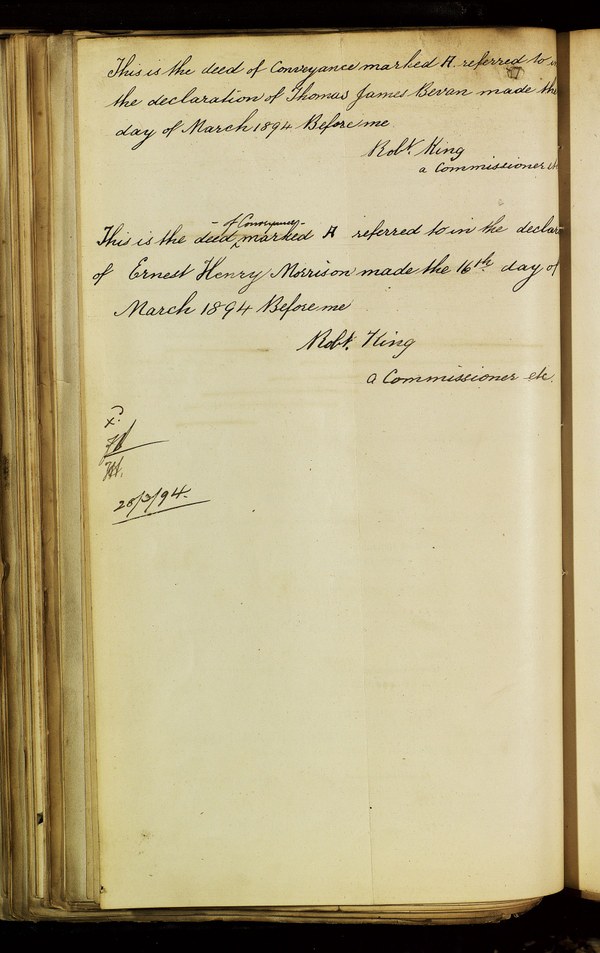 This is the deed of Conveyance marked A. referred to
the declaration of Thomas James Bevan made the
day of March 1894 Before me
Robt. King
a Commissioner etc
- of Conveyance -
This is the deed ^ marked A referred to in the declar
of Ernest Henry Morrison made the 16th. day of
March 1894 Before me
Robt. King
a Commissioner etc.
28/3/94.